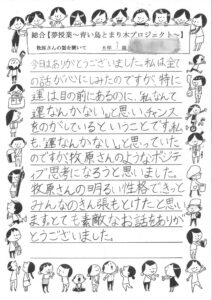 総合【夢授業～青い鳥とまり木プロジェクト～】
牧原さんの話を聞いて
6年
今日はありがとうございました。私は全て
の話が心にしみたのですが、特に
運は目の前にあるのに、「私なんて
運なんかない。」と思い、チャンス
をのがしているということです。私
も、「運なんかない。」と思っていた
のですが、牧原さんのようなポジティ
ブ思考になろうと思いました。
牧原さんの明るい性格できっと
みんなのきん張もとけたと思い
ます。とても素敵なお話をありが
とうございました。